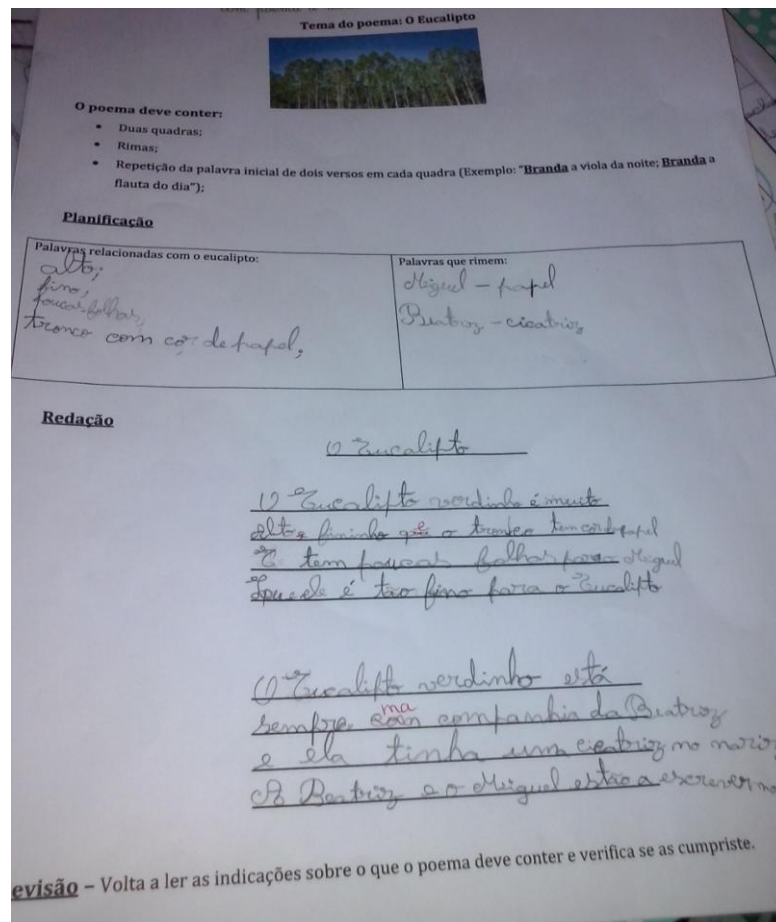 Tema do poema: O Eucalipto
O poema deve conter:
• Duas quadras;
• Rimas;
• Repetição da palavra inicial de dois versos em cada quadra (Exemplo: "Branda a viola da noite; Branda a
flauta do dia");
Planificação
Palavras relacionadas com o eucalipto:
alto;
fino,
poucas folhas,
tronco com cor de papel,
Palavras que rimem:
Miguel - papel
Beatriz - cicatriz
Redação
O Eucalipto
O Eucalipto verdinho é muito
alto, fininho o tronco tem cor papel
E tem poucas folhas para Miguel
ele é tão fino para o Eucalipto
O Eucalipto verdinho está
sempre na companhia da Beatriz
e ela tinha um cicatriz no nariz
A Beatriz e o Miguel estão a escrever no
evisão – Volta a ler as indicações sobre o que o poema deve conter e verifica se as cumpriste.